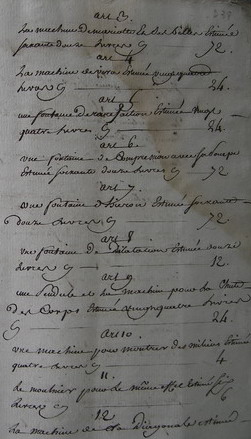 art 3.
La machine de mariotte et ses Billes Estimée
soixante douze Livres 72.
art 4
La machine de vera Estimée vingt quatre
Livres 24.
art 5
une fontaine de rarefaction Estimée vingt
quatre Livres 24.
art 6.
une fontaine de Compression avec sa
Estimée soixante douze Livres 72
art 7.
une fontaine d'heron Estimée soixante
douze Livres 72
art 8
une fontaine de dilatation Estimée douze
Livres 12.
art 9
une Pendule et la machine pour la Chute
Des Corps Estimée vingt quatre Livres
24.
art 10.
une machine pour montrer des milieux Estimée
quatre Livres 4
11.
de pour de même effet Estimé Six
Livres 6
12
La machine de la Diagonale Estimée